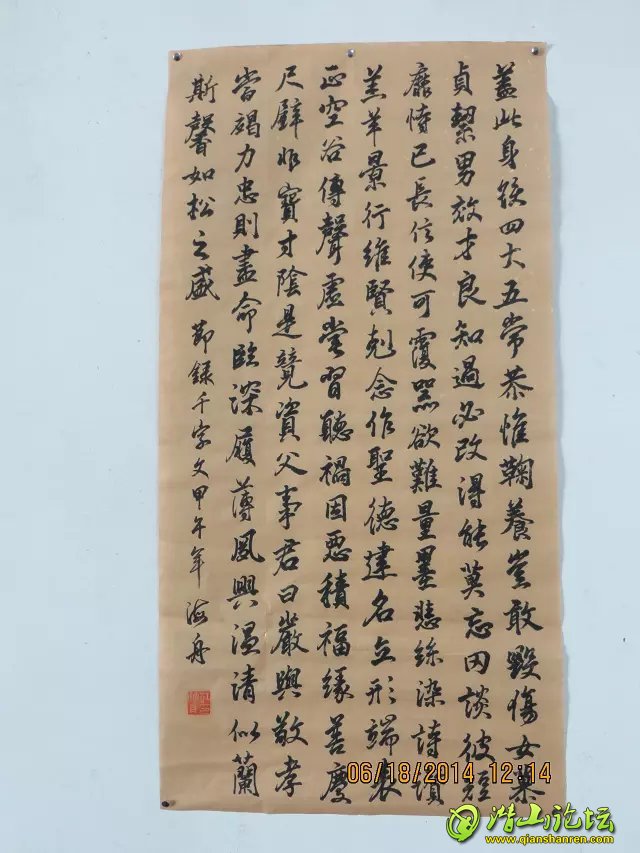 蓋此身髮四大五常恭惟鞠養豈敢毀傷女慕
貞絜男效才良知過必改得能莫忘罔談彼短
靡恃己長信使可覆器欲難量墨悲絲染詩讚
羔羊景行維賢剋念作聖德建名立形端表
正空谷傳聲虛堂習聽禍因惡積福緣善慶
尺璧非寶寸陰是競資父事君曰嚴與敬孝
當竭力忠則盡命臨深履薄夙興溫清似蘭
斯馨如松之盛 節錄千字文甲午年 海舟
06/18/2014 12:14
潜山论坛
www.qianshanren.com